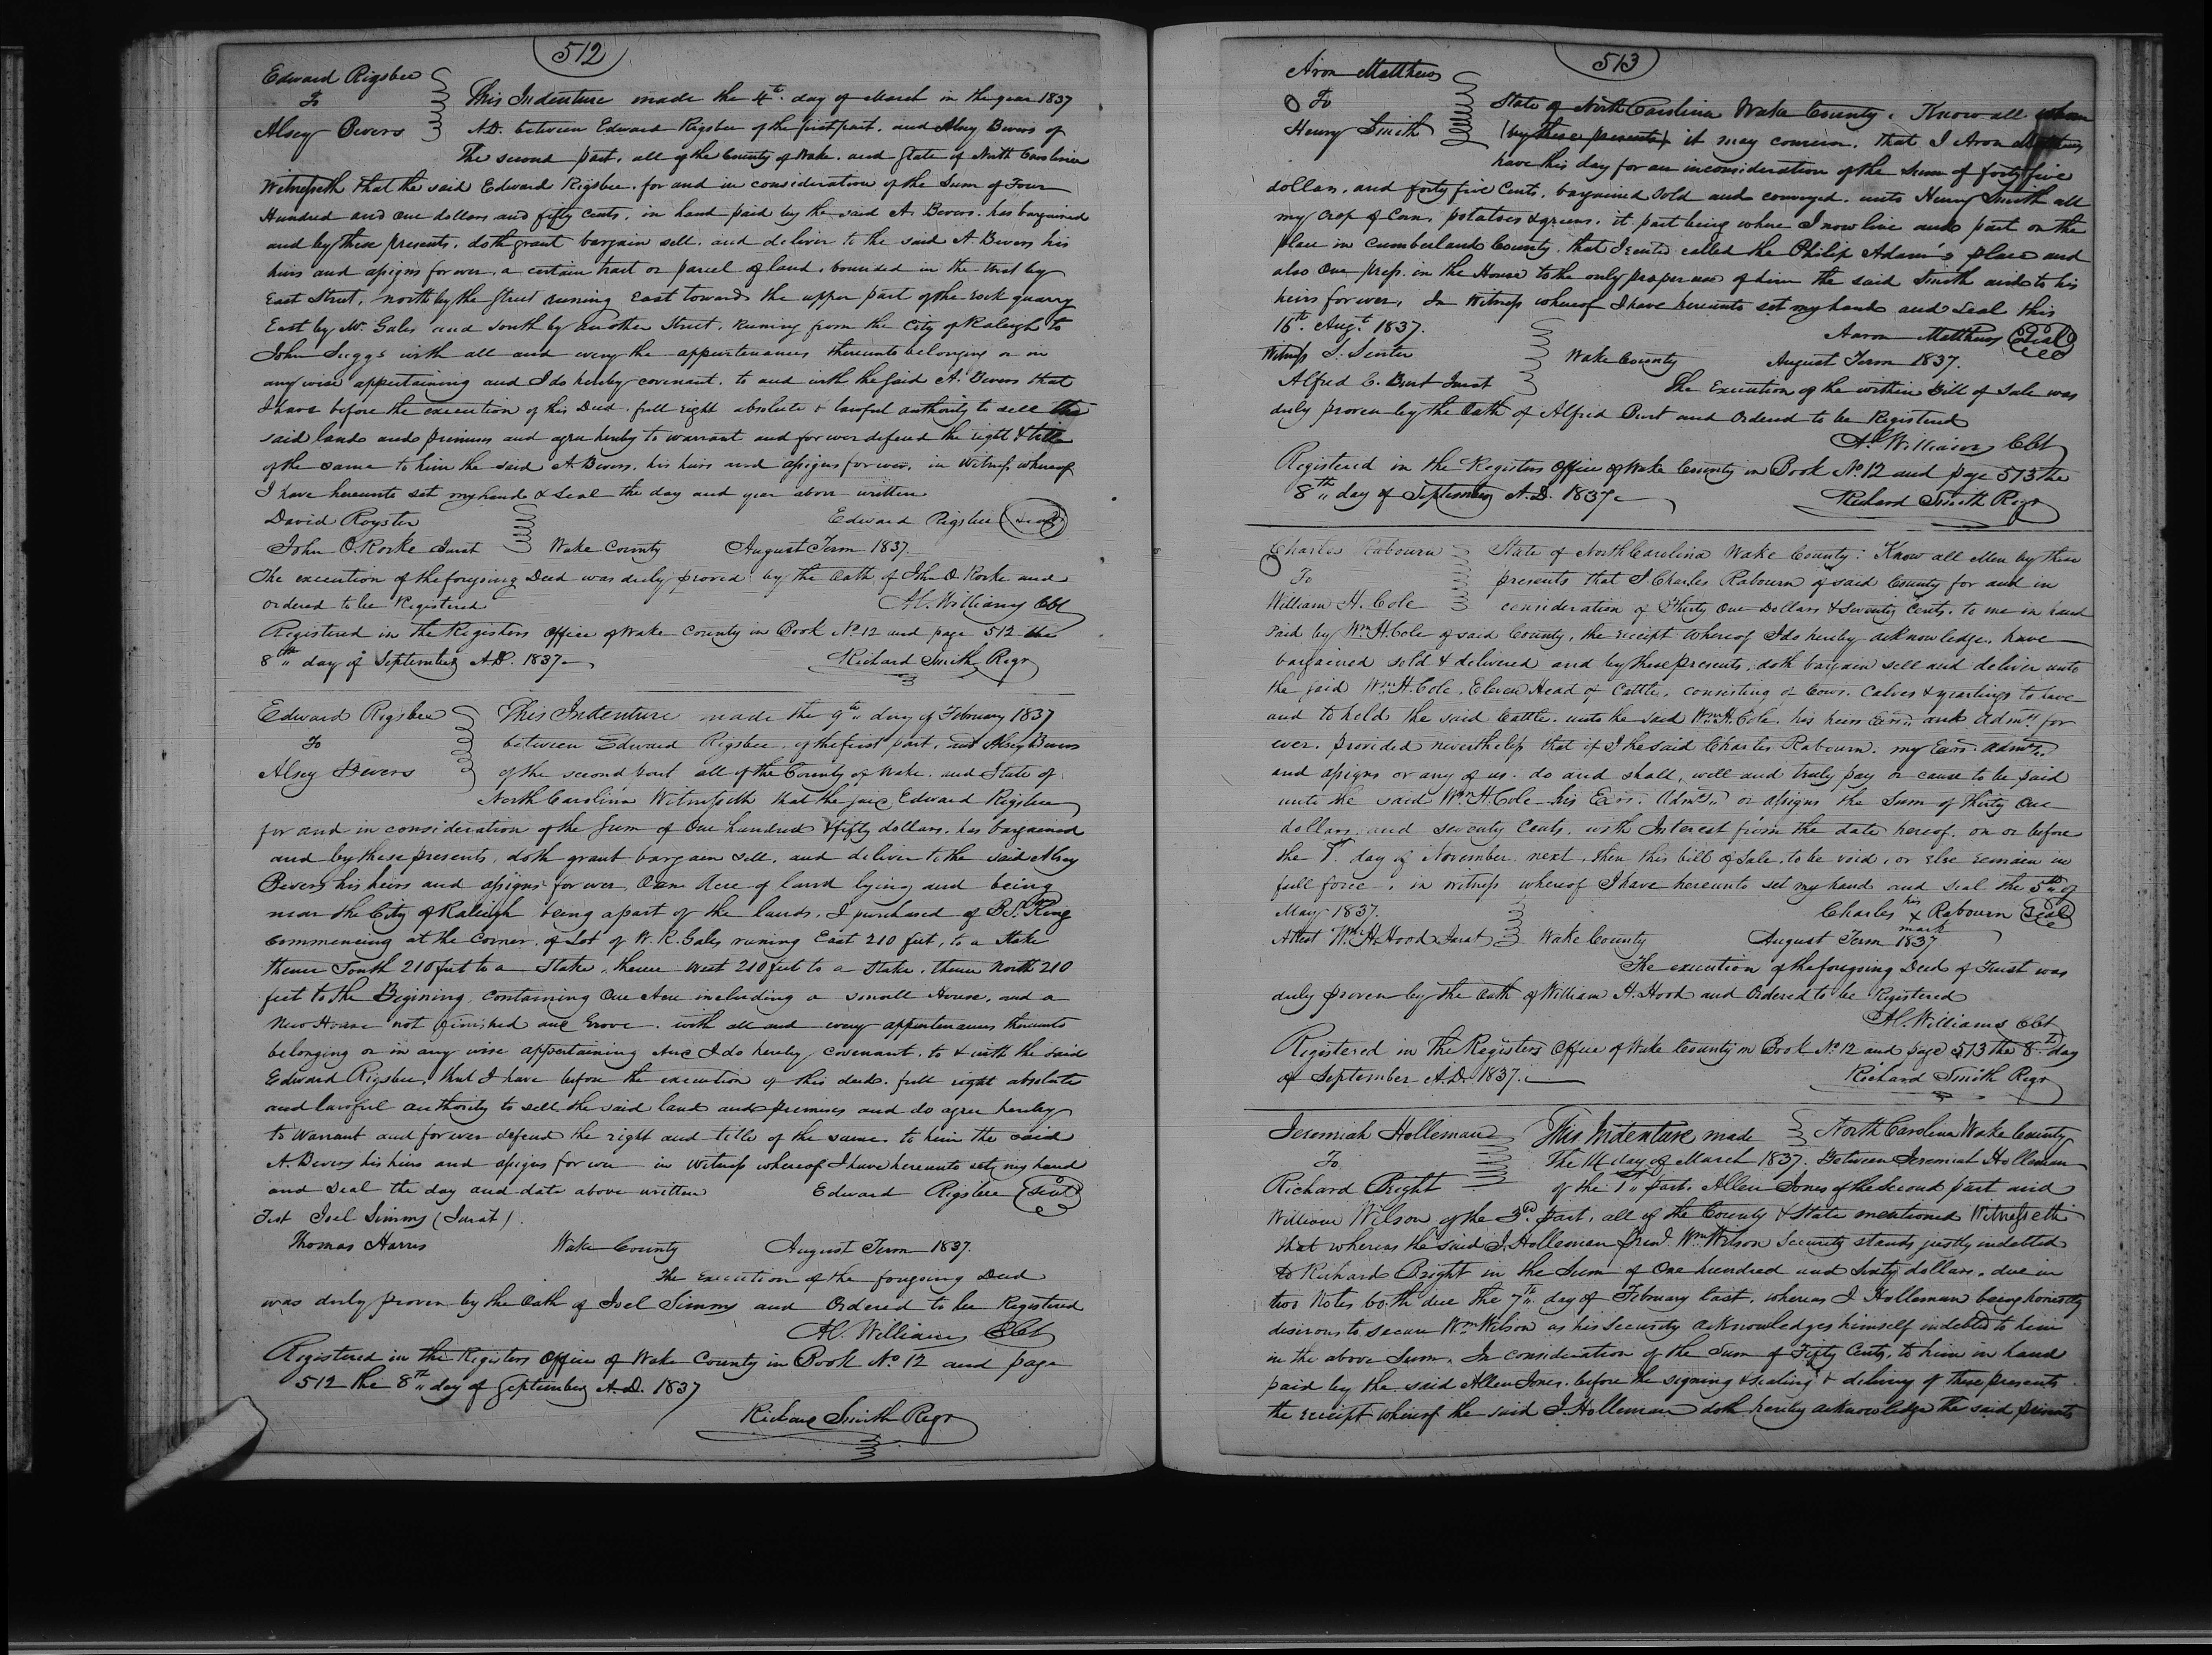 512
Edward Rigsbee
To
Alsey Bevers
This Indenture made the 4th day of March in the year 1837
A.D. between Edward Rigsbee of the first part, and Alsey Bevers of
The second part, all of the County of Wake, and State of North Carolina
Witnesseth that the said Edward Rigsbee, for and in consideration of the Sum of Four
Hundred and One dollars and fifty cents, in hand paid by the said A. Bevers has bargained
and by these presents, doth grant bargain sell, and deliver to the said A. Bevers his
heirs and assigns for ever, a certain tract or parcel of land, bounded in the West by
East Street, north by the Street runing east towards the upper part of the rock quarry
East by Mr. Gales and South by another Street, runing from the City of Raleigh to
John Suggs with all and every the appertenances thereunto belonging or in
any wise appertaining and I do hereby covenant, to and with the said A. Bevers that
I have before the execution of this Deed, full right absolute & lawful authority to sell the
said land and premises and agree hereby to warrant and for ever defend the right & title
of the same to him the said A. Bevers, his heirs and assigns for ever, in Witness whereof
I have hereunto set my hand & Seal the day and year above written
David Royster
Edward Rigsbee (Seal)
John O. Rorke Jurat
Wake County August Term 1837
The execution of the foregoing Deed was duly proved by the Oath of John O. Rorke and
ordered to be Registered
Al. Williams Clk
Registered in the Registers Office of Wake County in Book No 12 and page 512 the
8th day of September A.D. 1837
Richard Smith Regr
Edward Rigsbee
To
Alsey Bevers
This Indenture made the 9th day of February 1837
between Edward Rigsbee, of the first part, and Alsey Bevers
of the second part all of the County of Wake, and State of
North Carolina Witnesseth that the said Edward Rigsbee
for and in consideration of the Sum of One hundred & fifty dollars, has bargained
and by these presents, doth grant bargain sell, and deliver to the said Alsey
Bevers his heirs and assigns for ever, One Acre of land lying and being
near the City of Raleigh being a part of the lands, I purchased of B.S. King
Commencing at the Corner, of Lot of W. R. Gales runing East 210 feet, to a Stake
thence South 210 feet to a Stake, thence West 210 feet to a Stake, thence North 210
feet to the Begining, containing One Acre including a small House, and a
New House not finished and Grove, with all and every appertenances thereunto
belonging or in any wise appertaining And I do hereby covenant, to & with the said
Edward Rigsbee, that I have before the execution of this deed, full right absolute
and lawful authority to sell the said land and premises and do agree hereby
to Warrant and for ever defend the right and title of the same to him the said
A. Bevers his heirs and assigns for ever in Witness whereof I have hereunto set my hand
and Seal the day and date above written
Edward Rigsbee (Seal)
Test Joel Simms (Jurat)
Thomas Harris
Wake County August Term 1837.
The Execution of the foregoing Deed
was duly proven by the Oath of Joel Simms and Ordered to be Registered
Al. Williams Clk
Registered in the Registers Office of Wake County in Book No 12 and page
512 the 8th day of September A.D. 1837
Richard Smith Regr
513
Aron Matthews
To
Henry Smith
State of North Carolina Wake County. Know all whom
(by these presents) it may concern, that I Aron Matthews
have this day for an inconsideration of the Sum of forty five
dollars, and forty five Cents, bargained Sold and conveyed, unto Henry Smith all
my Crop of Corn, potatoes & greens, it part being where I now live and part on the
place in Cumberland County, that I rented called the Philip Adam's place and
also One press. in the House to the only proper use of him the said Smith and to his
heirs for ever, In Witness whereof I have hereunto set my hand and Seal this
16th Augt 1837.
Aaron Matthews (Seal)
Witness S. Senter
Wake County August Term 1837.
Alfred C. Burt Jurat
The Execution of the within Bill of Sale was
duly proven by the Oath of Alfred Burt and Ordered to be Registered
Al. Williams Clk
Registered in the Registers Office of Wake County in Book No 12 and page 513 the
8th day of September A.D. 1837
Richard Smith Regr
Charles Rabourn
To
William H. Cole
State of North Carolina Wake County: Know all Men by these
presents that I Charles Rabourn of said County for and in
consideration of Thirty One Dollars & Seventy Cents, to me in hand
Paid by Wm H. Cole of said County, the receipt whereof I do hereby acknowledge, have
bargained sold & delivered and by these presents, doth bargain sell and deliver unto
the said Wm H. Cole, Eleven Head of Cattle, consisting of Cows, Calves & yearlings to have
and to hold the said Cattle, unto the said Wm H. Cole, his heirs Exrs. and Admrs for
ever, provided nevertheless that if I he said Charles Rabourn, my Exrs Admrs
and assigns or any of us, do and shall, well and truly pay or cause to be paid
unto the said Wm H. Cole his Exrs. Admrs or assigns the Sum of thirty One
dollars, and seventy Cents, with Interest from the date hereof, on or before
the 1st day of November next, then this bill of Sale, to be void, or else remain in
full force, in witness whereof I have hereunto set my hand and seal the 5th of
May 1837.
his
Charles x Rabourn (Seal)
mark
Attest Wm H. Hood Jurat
Wake County August Term 1837
The execution of the foregoing Deed of Trust was
duly proven by the Oath of William H. Hood and Ordered to be Registered
Al. Williams Clk
Registered in the Registers Office of Wake County in Book No 12 and page 513 the 8th day
of September A.D. 1837.
Richard Smith Regr
Jeremiah Holleman
To
Richard Bright
This Indenture made
North Carolina Wake County
The 14 day of March 1837. Between Jeremiah Holleman
of the 1st part, Allen Jones of the Second part and
William Wilson of the 3rd part, all of the County & State mentioned Witnesseth
that whereas the said J. Holleman & Wm Wilson Security stands justly indebted
to Richard Bright in the Sum of One hundred and Sixty dollars, due in
two Notes both due the 7th day of February last, whereas J. Holleman being honestly
desirous to secure Wm Wilson as his Security acknowledges himself indebted to him
in the above Sum, In consideration of the Sum of Fifty Cents, to him in hand
paid by the said Allen Jones, before the signing & sealing & delivery of these presents
the receipt whereof the said J. Holleman doth hereby acknowledge the said